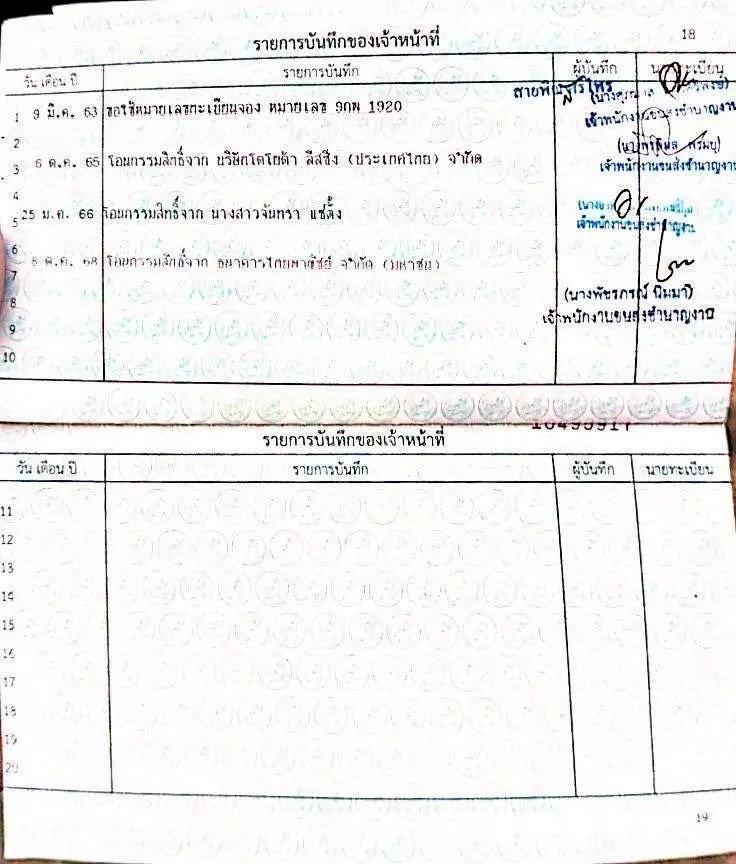 18
รายการบันทึกของเจ้าหน้าที่
วัน เดือน ปี รายการบันทึก ผู้บันทึก นายทะเบียน
1 9 มี.ค. 63 ขอใช้หมายเลขทะเบียนจอง หมายเลข 9กพ 1920
เจ้าพนักงานขนส่งชำนาญงาน
2
3 6 ต.ค. 65 โอนกรรมสิทธิ์จาก บริษัทโตโยต้า ลีสซิ่ง (ประเทศไทย) จำกัด
เจ้าพนักงานขนส่งชำนาญงาน
4
5 25 ม.ค. 66 โอนกรรมสิทธิ์จาก นางสาวจันทรา แซ่ตั้ง
เจ้าพนักงานขนส่งชำนาญงาน
6
7 8 พ.ค. 68 โอนกรรมสิทธิ์จาก ธนาคารไทยพาณิชย์ จำกัด (มหาชน)
8 (นางพัชรภรณ์ นิมมา)
เจ้าพนักงานขนส่งชำนาญงาน
9
10
รายการบันทึกของเจ้าหน้าที่
วัน เดือน ปี รายการบันทึก ผู้บันทึก นายทะเบียน
11
12
13
14
15
16
17
18
19
20
19